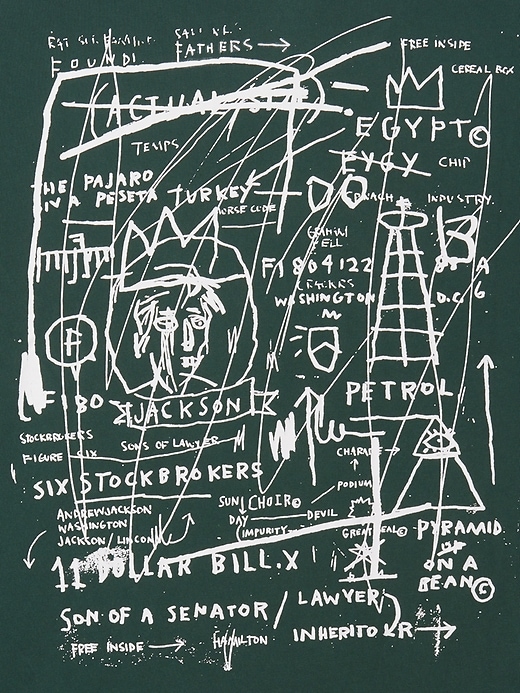 FATHERS →
FREE INSIDE
CEREAL BOX
FOUND!
(ACTUAL SIZE)
EGYPT©
TEMPS
EYGY CHIP
THE PAJARO
IN A PESETA
TURKEY
INDUSTRY.
MORSE CODE
F1804122
WASHINGTON
D.C.
A
6
F
PETROL
F180
JACKSON
STOCKBROKERS
SONS OF LAWYER
FIGURE SIX
CHARADE →
SIX STOCKBROKERS
PODIUM
SUN CHOIR©
ANDREW JACKSON
WASHINGTON
JACKSON / LINCOLN
DAY DEVIL
(IMPURITY
GREAT SEAL© PYRAMID
11 DOLLAR BILL.X
ON A
BEAN©
SON OF A SENATOR / LAWYER
FREE INSIDE →
HAMILTON
INHERITOR →